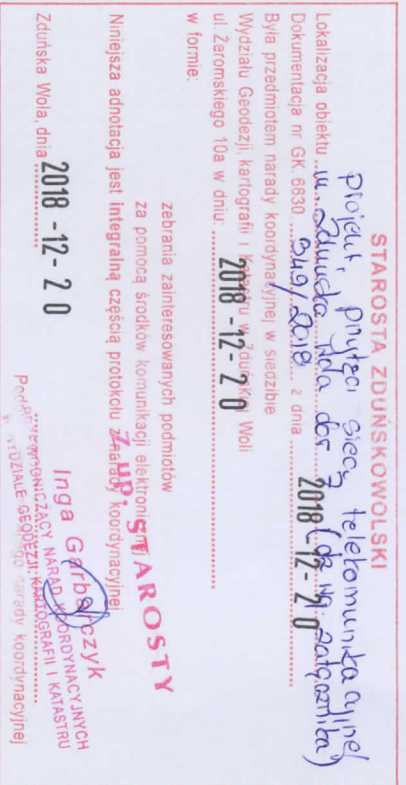 STAROSTA ZDUŃSKOWOLSKI
projekt, przyłącz sieci telekomunikacyjnej
Lokalizacja obiektu m. Zduńska Wola dz. (dz. wg. załącznika)
Dokumentacja nr GK. 6630. 349/2018 z dnia 2018 -12- 2 0
Była przedmiotem narady koordynacyjnej w siedzibie
Wydziału Geodezji, kartografii i katastru w Zduńskiej Woli
ul Żeromskiego 10a w dniu: 2018 -12- 2 0
w formie:
zebrania zainteresowanych podmiotów
za pomocą środków komunikacji elektronicznej
Niniejsza adnotacja jest integralną częścią protokołu z narady koordynacyjnej
Z up. STAROSTY
Zduńska Wola, dnia 2018 -12- 2 0
Inga Garbarczyk
PRZEWODNICZĄCY NARAD KOORDYNACYJNYCH
W WYDZIALE GEODEZJI KARTOGRAFII I KATASTRU
narady koordynacyjnej